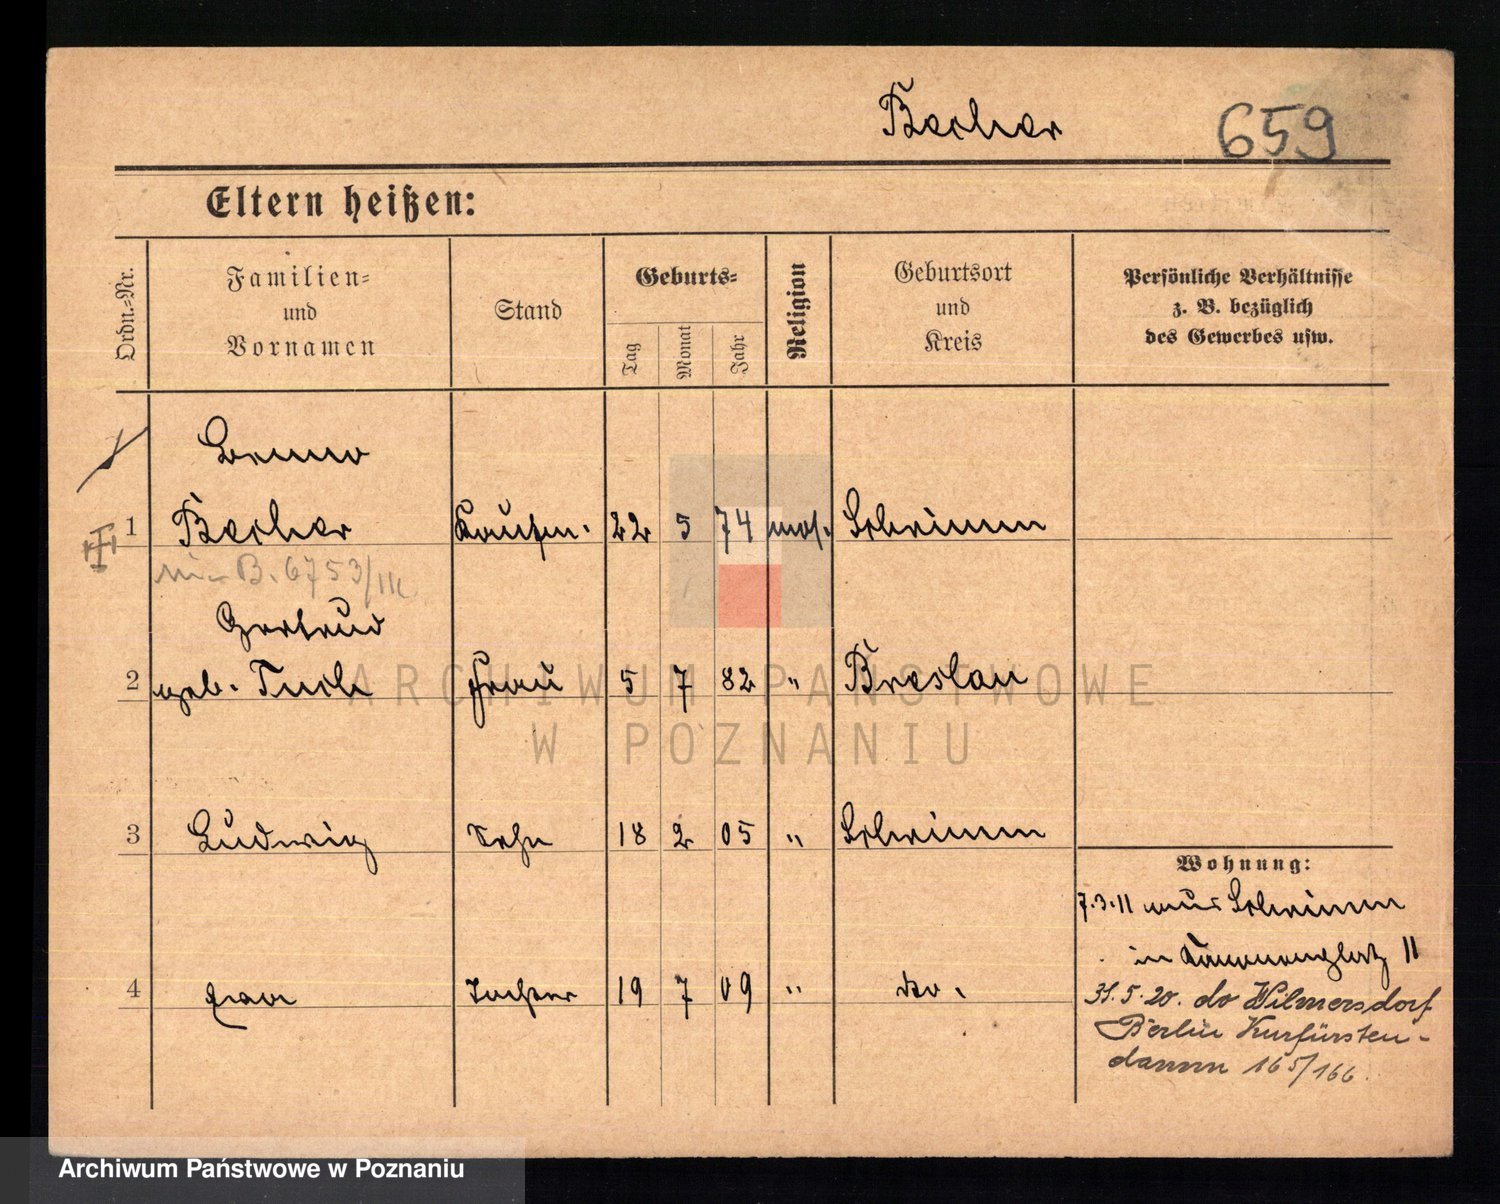 Becher
659
Eltern heißen:
Ordn.=Nr.
Familien=
und
Vornamen
Stand
Geburts=
Tag
Monat
Jahr
Religion
Geburtsort
und
Kreis
Persönliche Verhältnisse
z. B. bezüglich
des Gewerbes usw.
Benno
1 Becher Kaufm. 22 5 74 mos. Schrimm
B. 6753/III
Gertrud
2 geb. Tuch Frau 5 7 82 " Breslau
3 Ludwig Sohn 18 2 05 " Schrimm
Wohnung:
7.3.11 aus Schrimm
in Kanonenplatz 11
4 Tochter 19 7 09 " do.
31.5.20. do Wilmersdorf
Berlin Kurfürsten-
damm 165/166.
ARCHIWUM PAŃSTWOWE
W POZNANIU
Archiwum Państwowe w Poznaniu